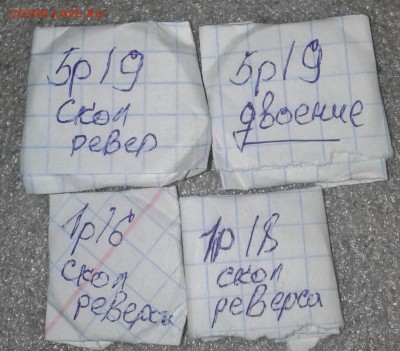 5р19
скол
ревер
5р19
двоение
1р16
скол
реверса
1р18
скол
реверса